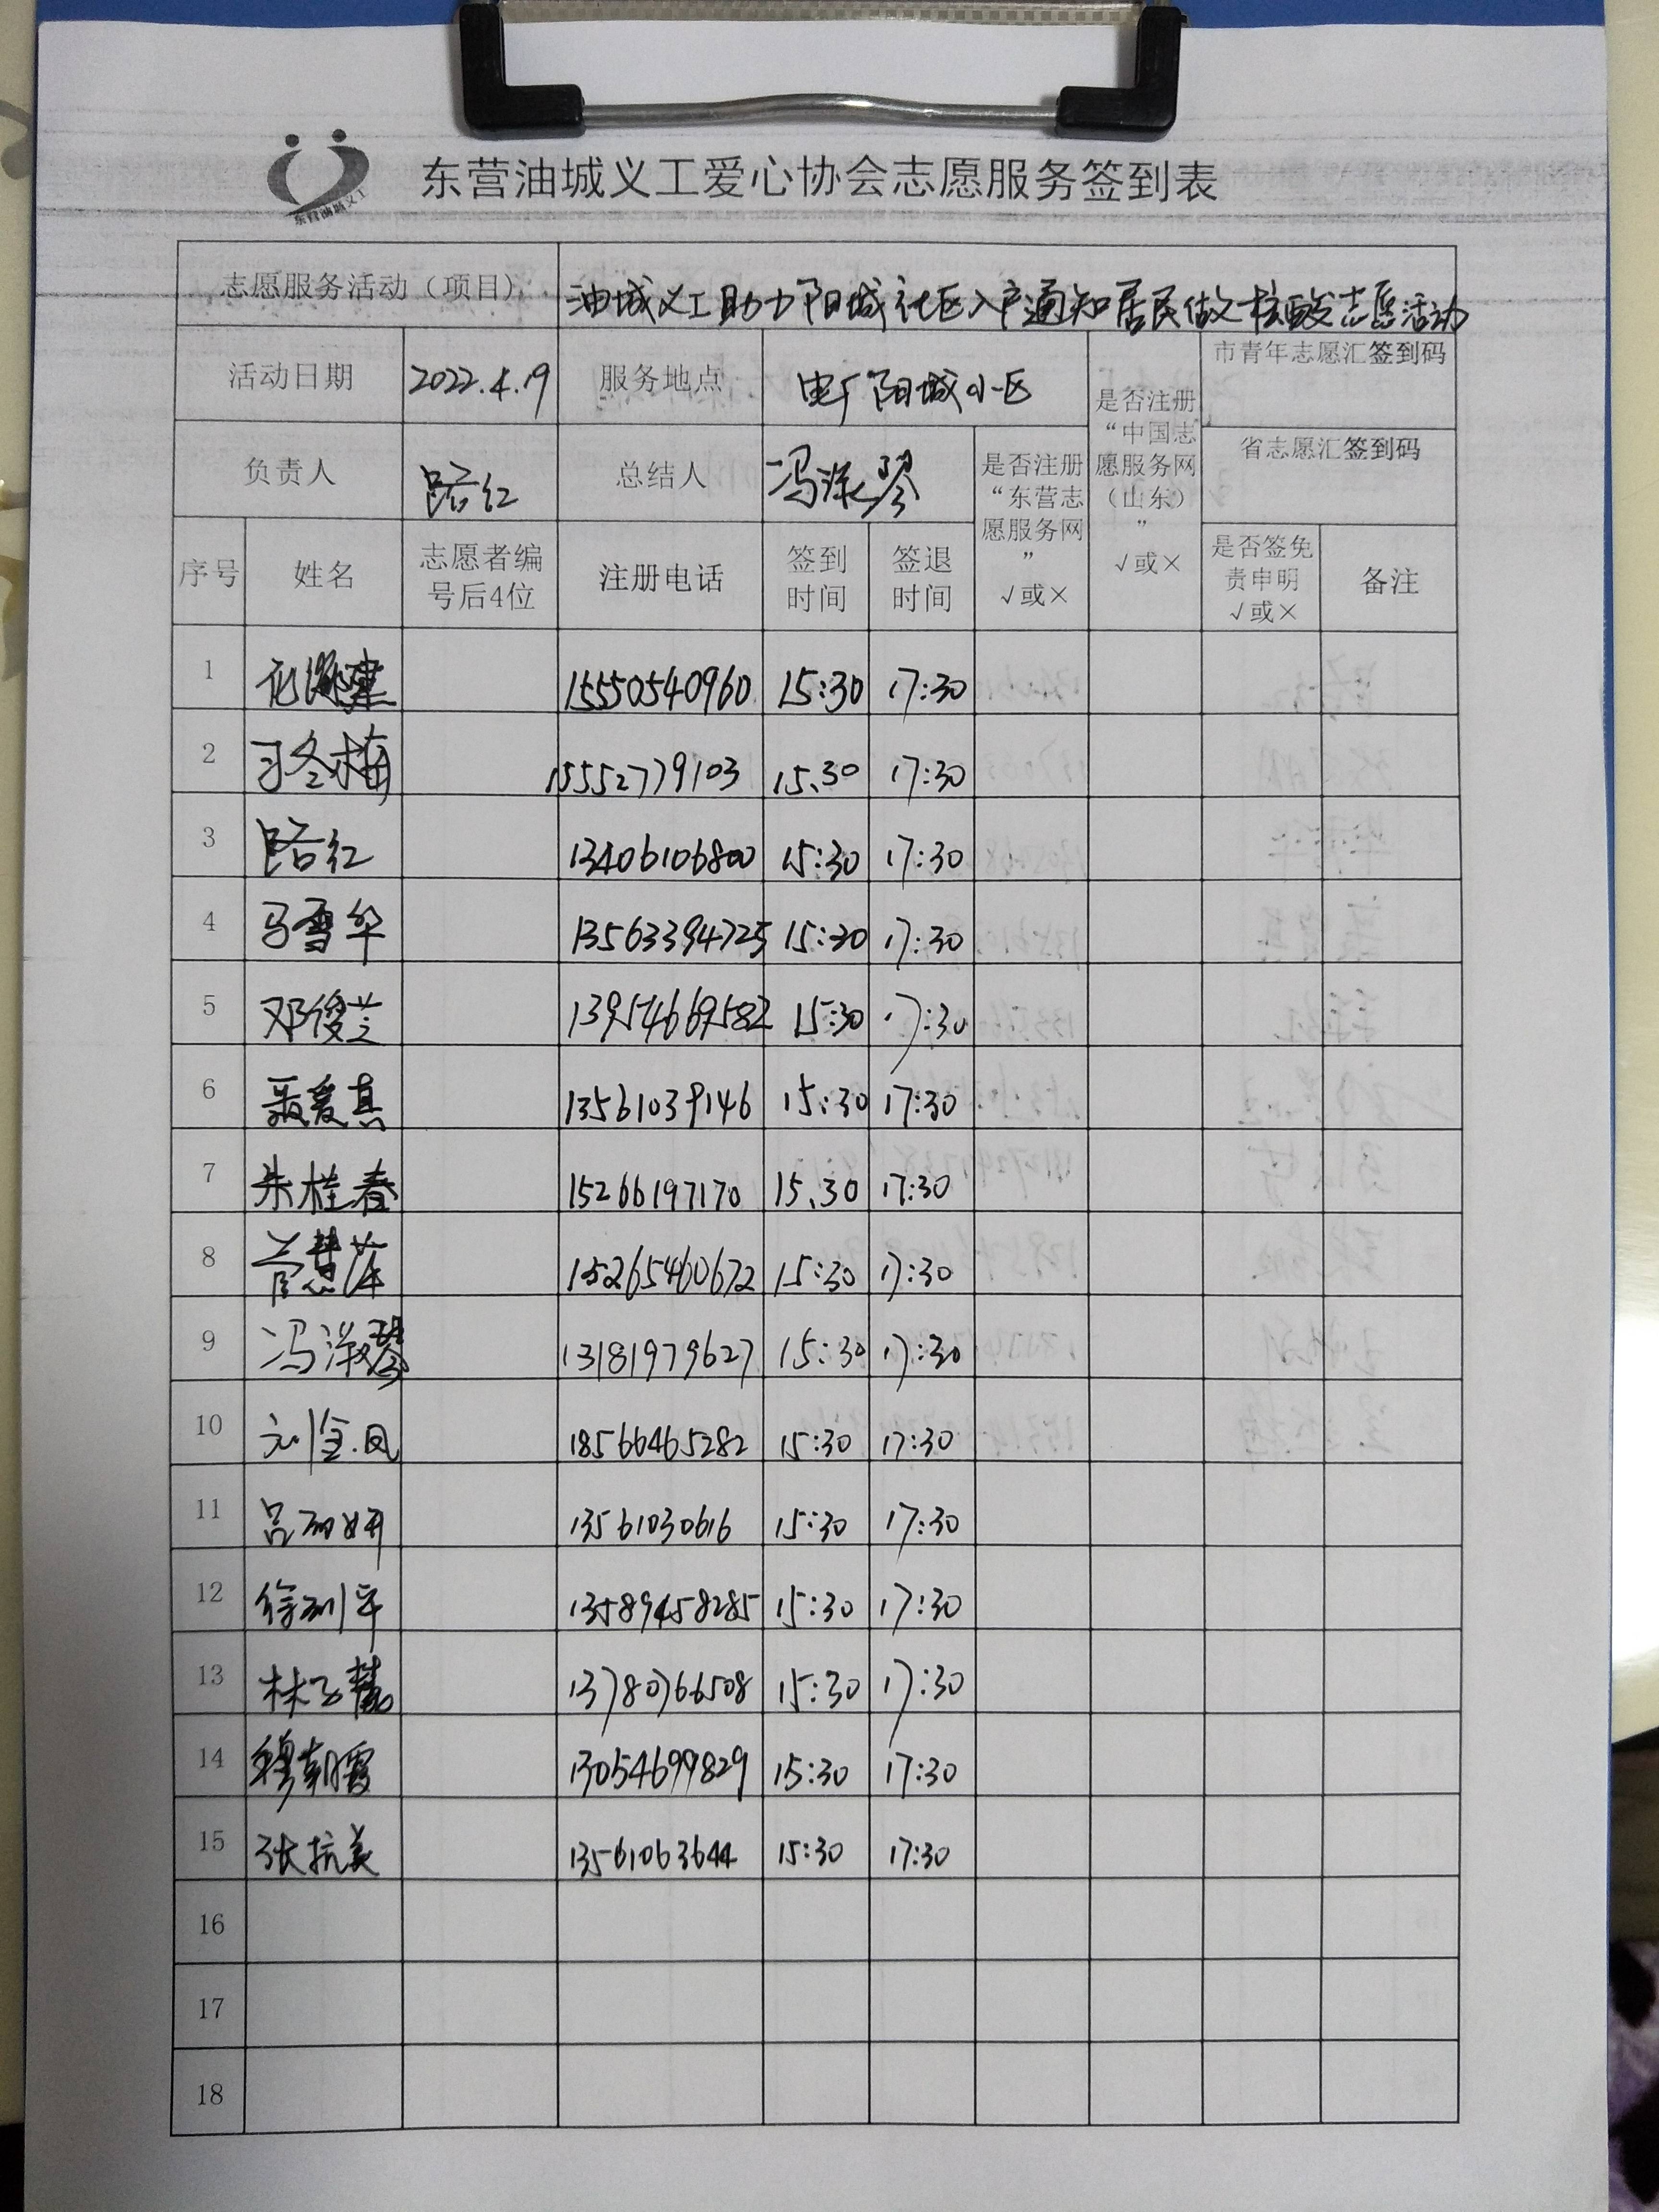 东营油城义工
东营油城义工爱心协会志愿服务签到表
志愿服务活动（项目） 油城义工助力阳城社区入户通知居民做核酸志愿活动
活动日期 2022.4.19 服务地点 电厂阳城小区
是否注册“中国志愿服务网（山东）” √或×
市青年志愿汇签到码
负责人 路红 总结人 冯淑琴
是否注册“东营志愿服务网” √或×
省志愿汇签到码
序号 姓名 志愿者编号后4位 注册电话 签到时间 签退时间 是否签免责申明 √或× 备注
1 15550540960 15:30 17:30
2 冬梅 15552779103 15.30 17:30
3 路红 13406106800 15:30 17:30
4 马雪华 13563394725 15:30 17:30
5 邓俊兰 13954669582 15:30 17:30
6 聂爱真 13561039146 15:30 17:30
7 朱桂春 15266197170 15.30 17:30
8 管慧萍 15265460672 15:30 17:30
9 冯淑琴 13181979627 15:30 17:30
10 刘金凤 18566465282 15:30 17:30
11 吕丽妍 13561030616 15:30 17:30
12 徐利平 13589458285 15:30 17:30
13 林 13780766508 15:30 17:30
14 穆朝霞 13054699829 15:30 17:30
15 张抗美 13561063644 15:30 17:30
16
17
18